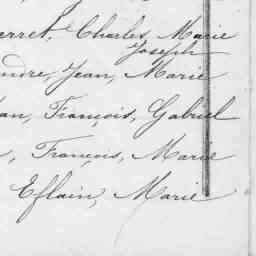 erret, Charles, Marie
Joseph
andre, Jean, Marie
an, François, Gabriel
, François, Marie
Eflain, Marie